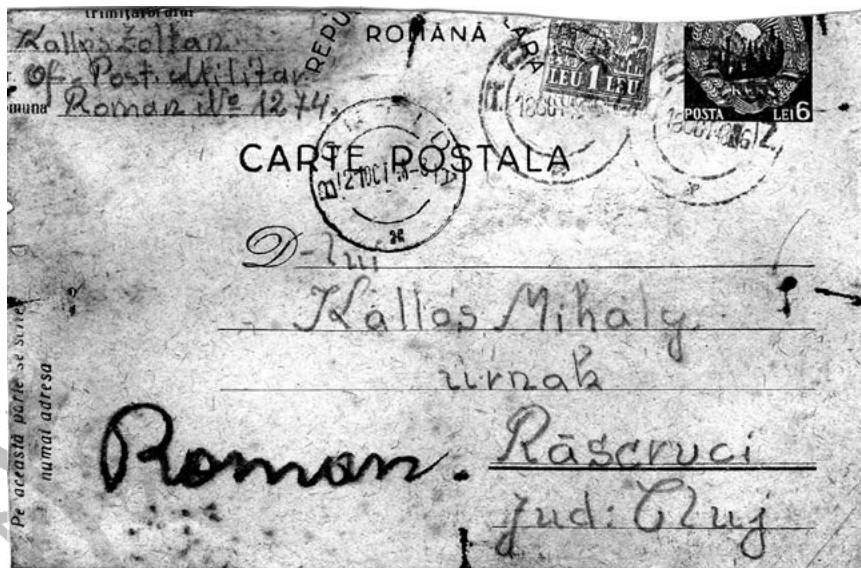 trimițătorului
Kallós Zoltán
Of. Post. Militar
omuna Roman No 1274.
REPU ROMÂNĂ LARĂ
LEU 1 LEU
POSTA LEI 6
CARTE POSTALA
BONȚIDA
D-lui
Kállós Mihály
úrnak
Răscruci
jud: Cluj
Roman.
Pe această parte se scrie
numai adresa